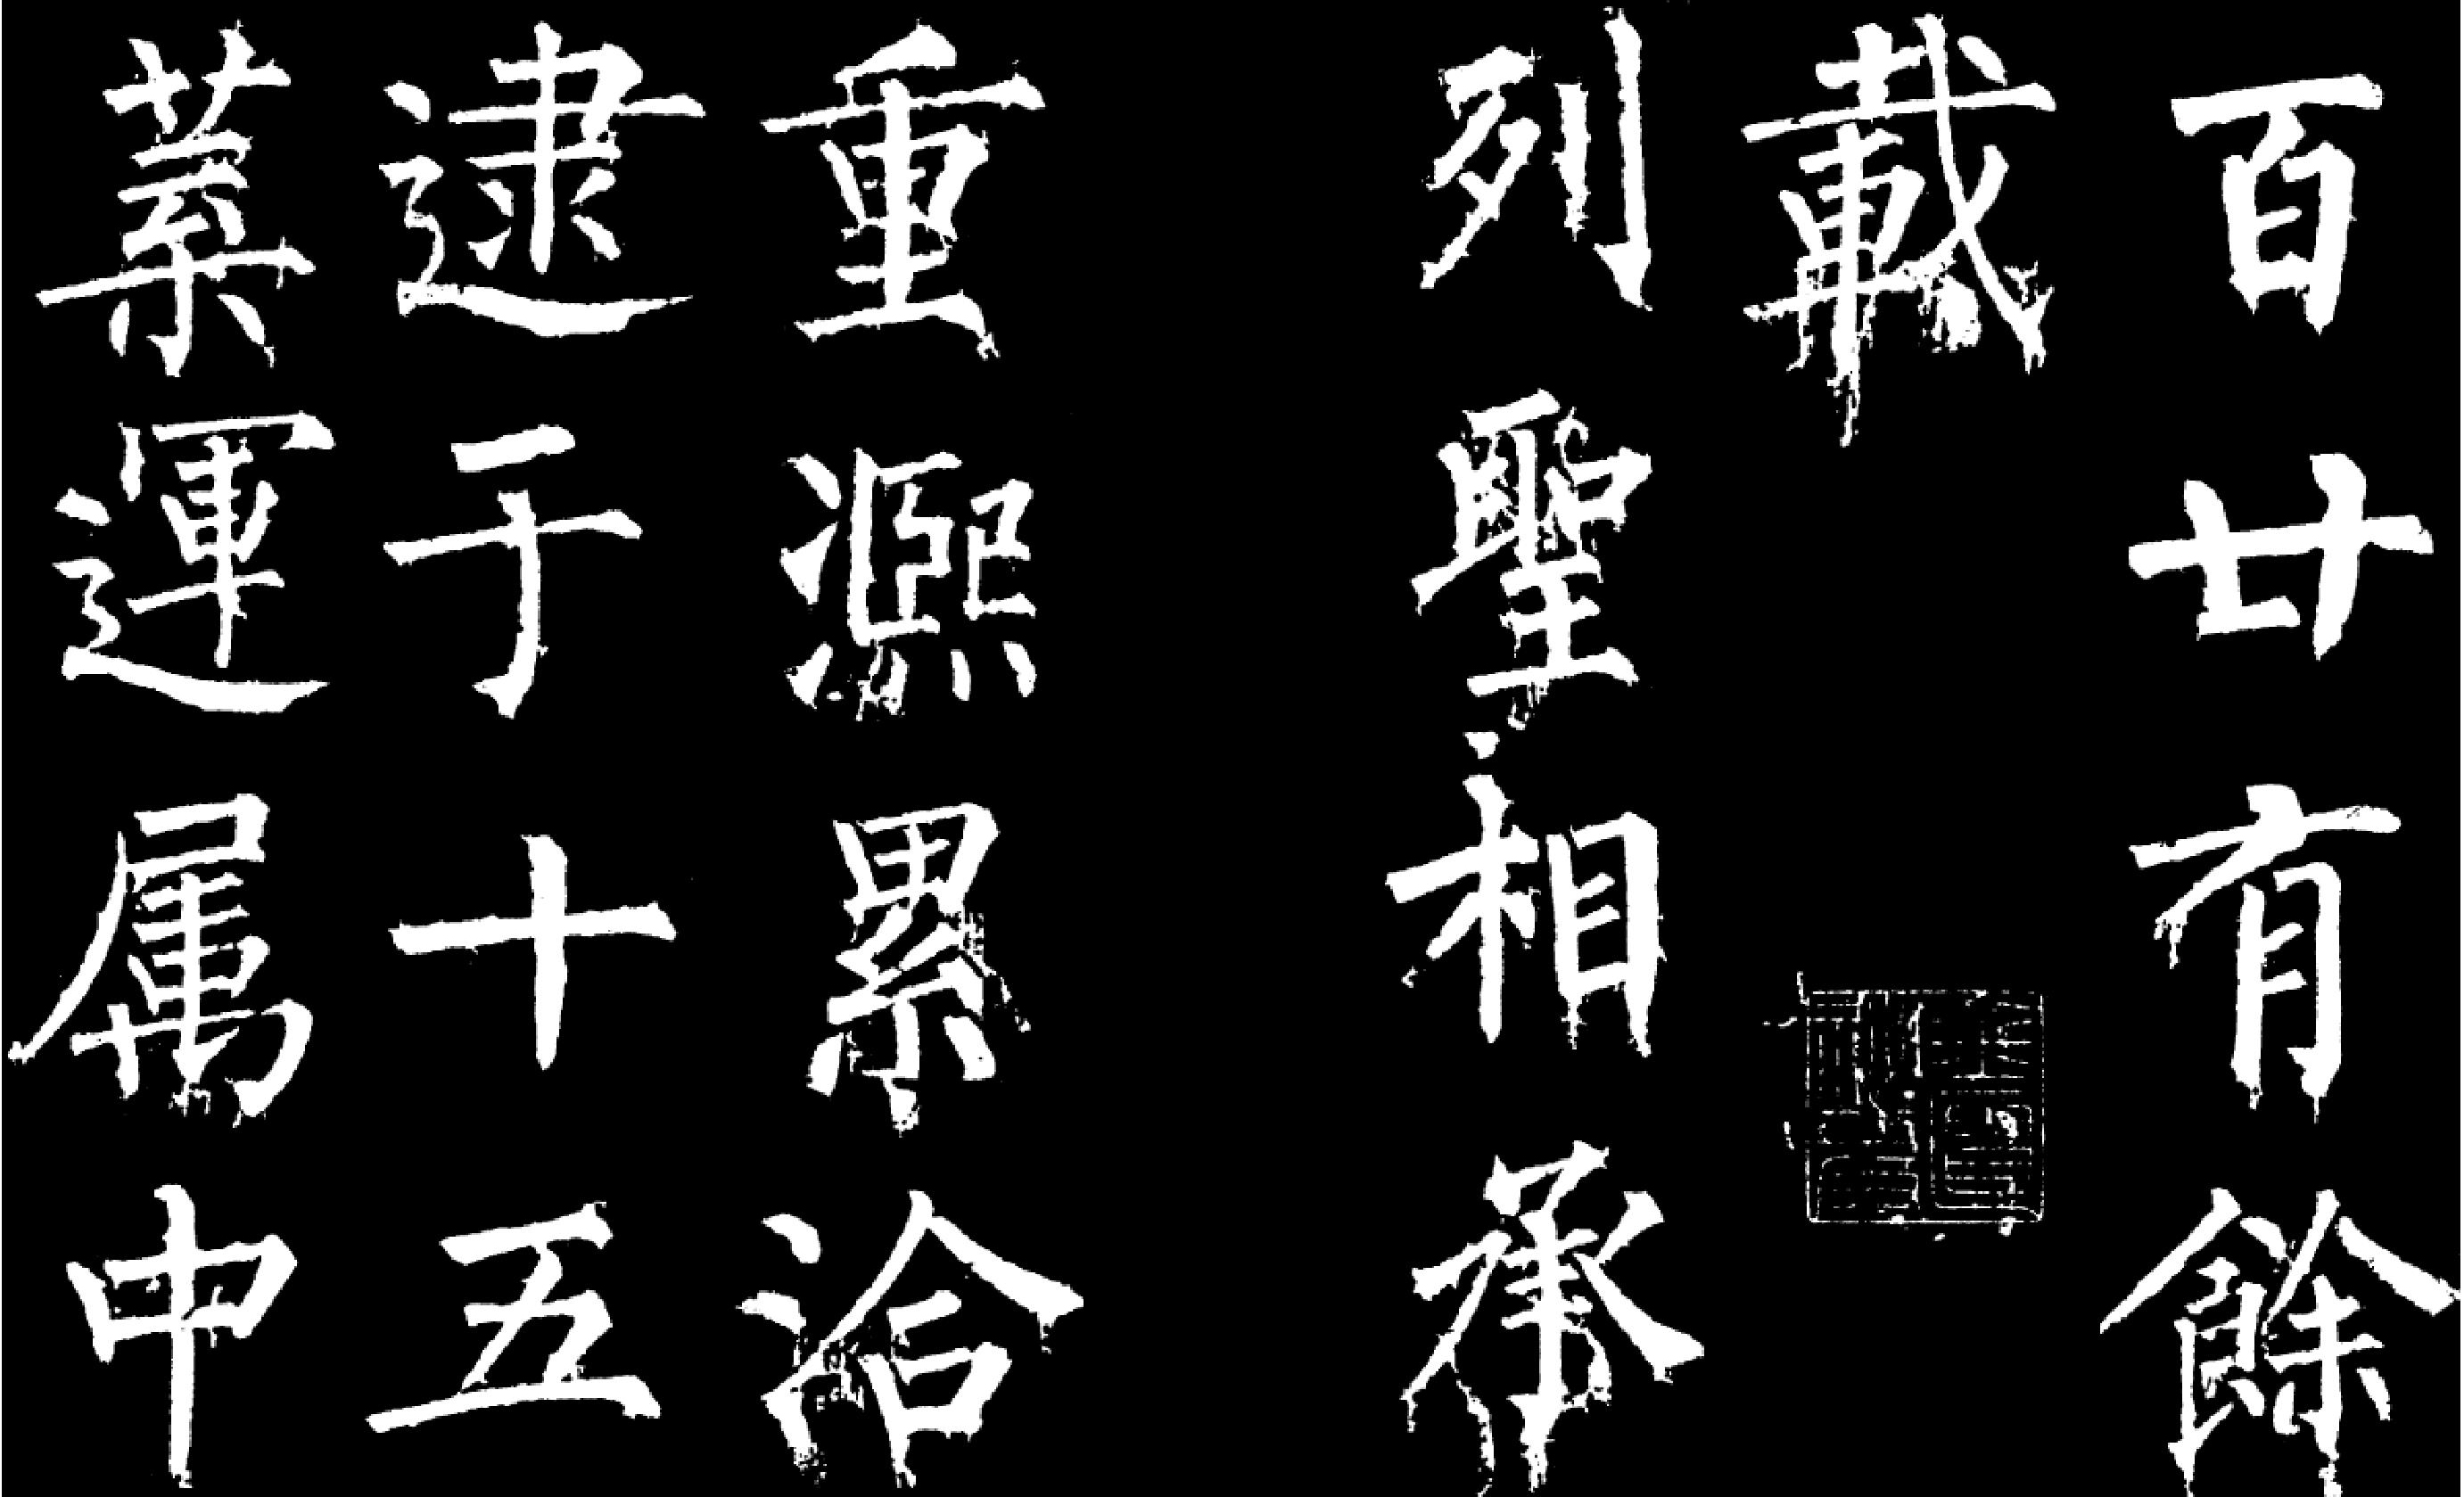 百廿有餘
載
列聖相承
重熙累洽
逮于十五
葉運属中